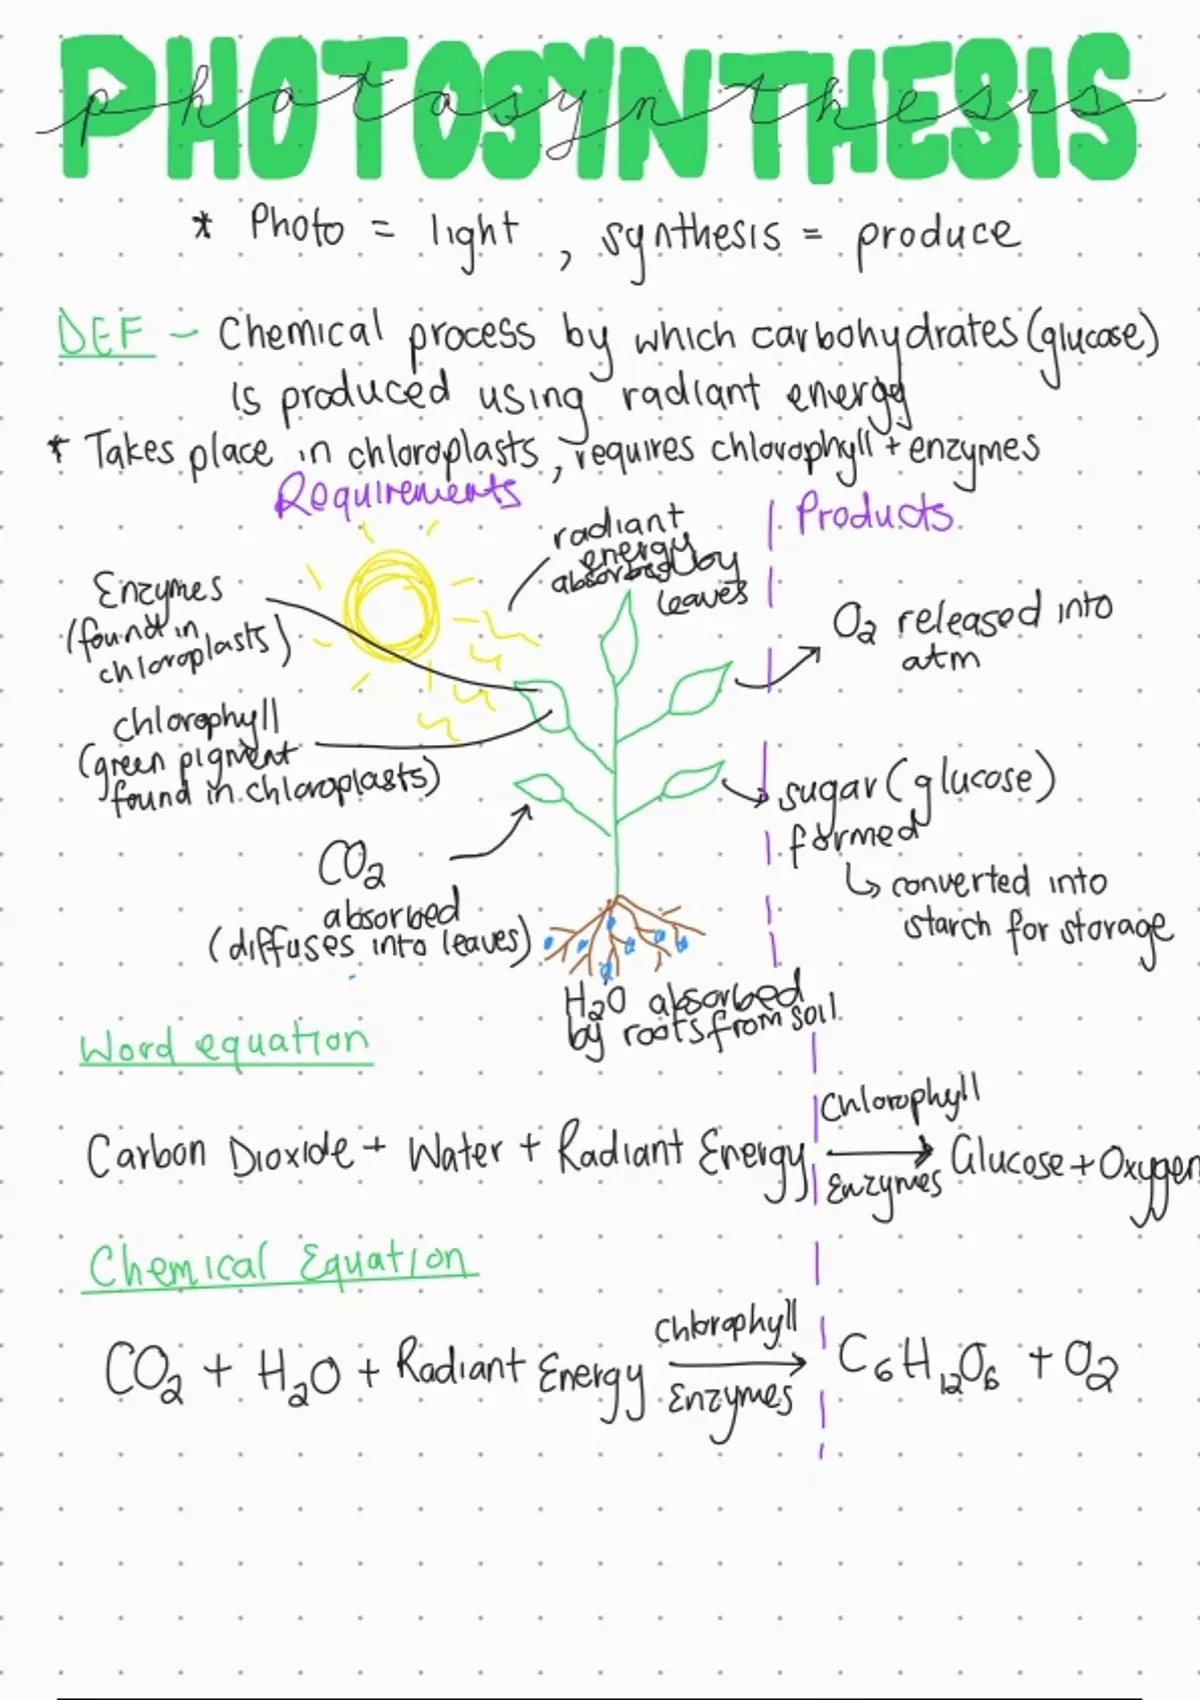 PHOTOSYNTHESIS
photosynthesis
* Photo = light, synthesis = produce
DEF - Chemical process by which carbohydrates (glucose)
is produced using radiant energy
* Takes place in chloroplasts, requires chlorophyll + enzymes
Requirements
Products
radiant
energy
absorbed by
leaves
Enzymes
(found in
chloroplasts)
O2 released into
atm
chlorophyll
(green pigment
found in chloroplasts)
sugar (glucose)
formed
↳ converted into
starch for storage
CO2
absorbed
(diffuses into leaves)
H2O absorbed
by roots from soil
Word equation
Chlorophyll
Carbon Dioxide + Water + Radiant Energy → Glucose + Oxygen
Enzymes
Chemical Equation
Chlorophyll
CO2 + H2O + Radiant Energy → C6H12O6 + O2
Enzymes